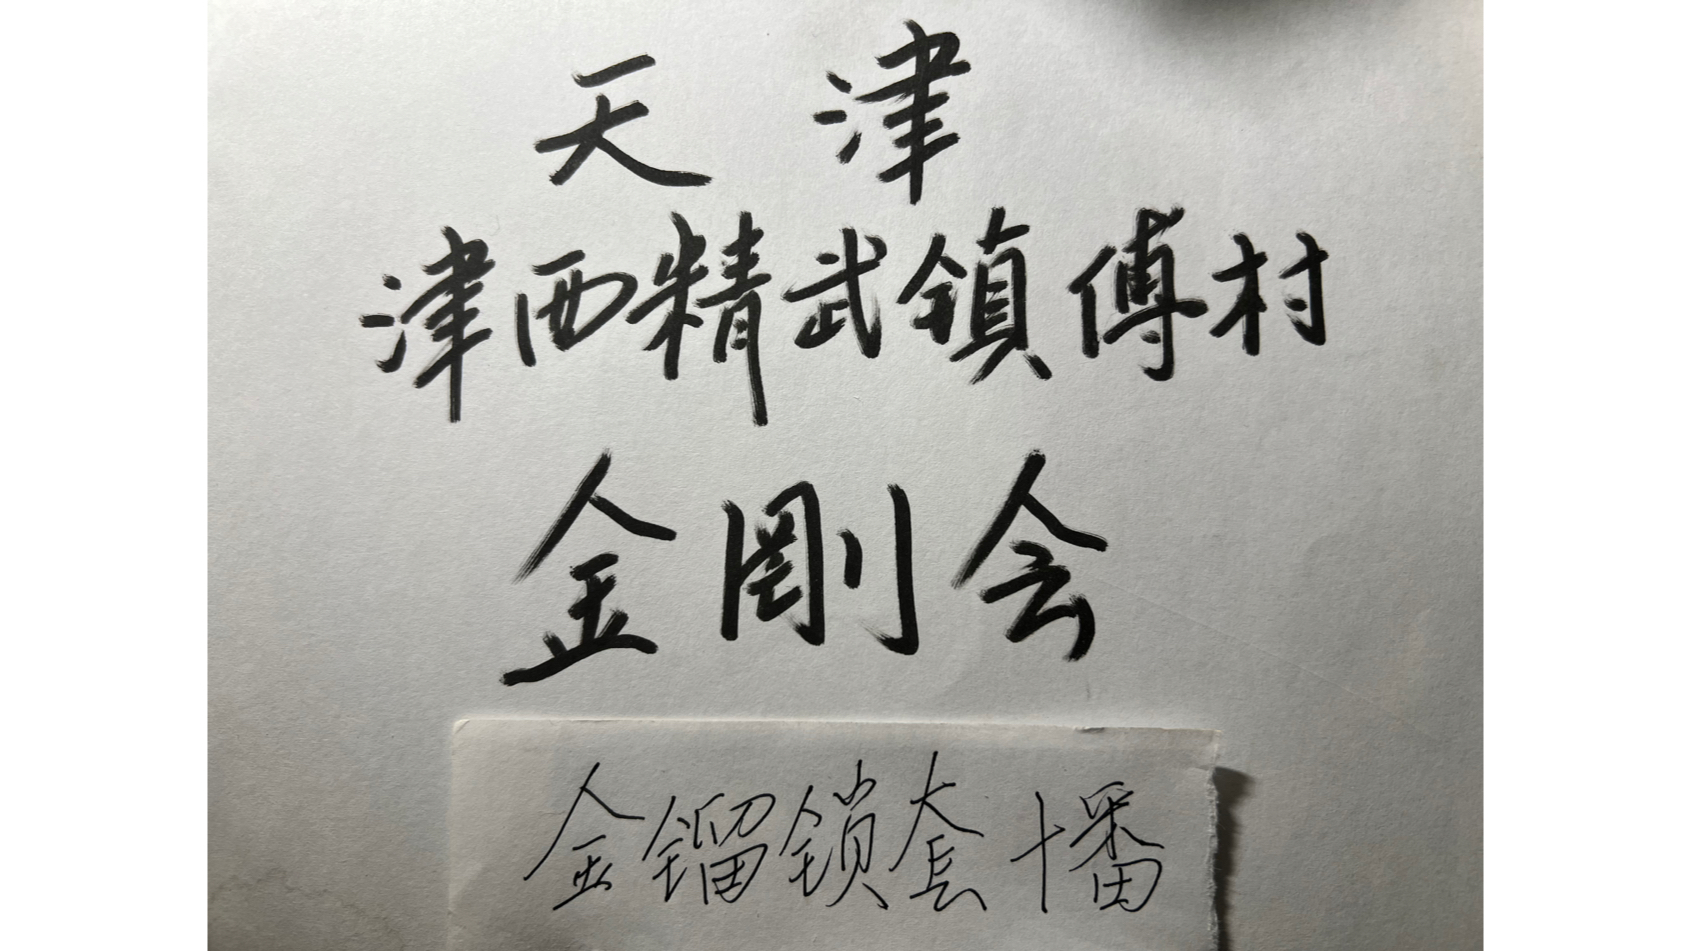 天津
津西精武镇傅村
金剛会
金镏锁套十番